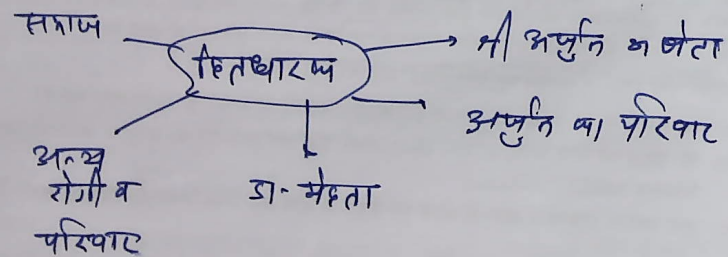 समाज
हितधारक
श्री अर्जुन का बेटा
अर्जुन का परिवार
अन्य
रोगी व
परिवार
डा- मेहता